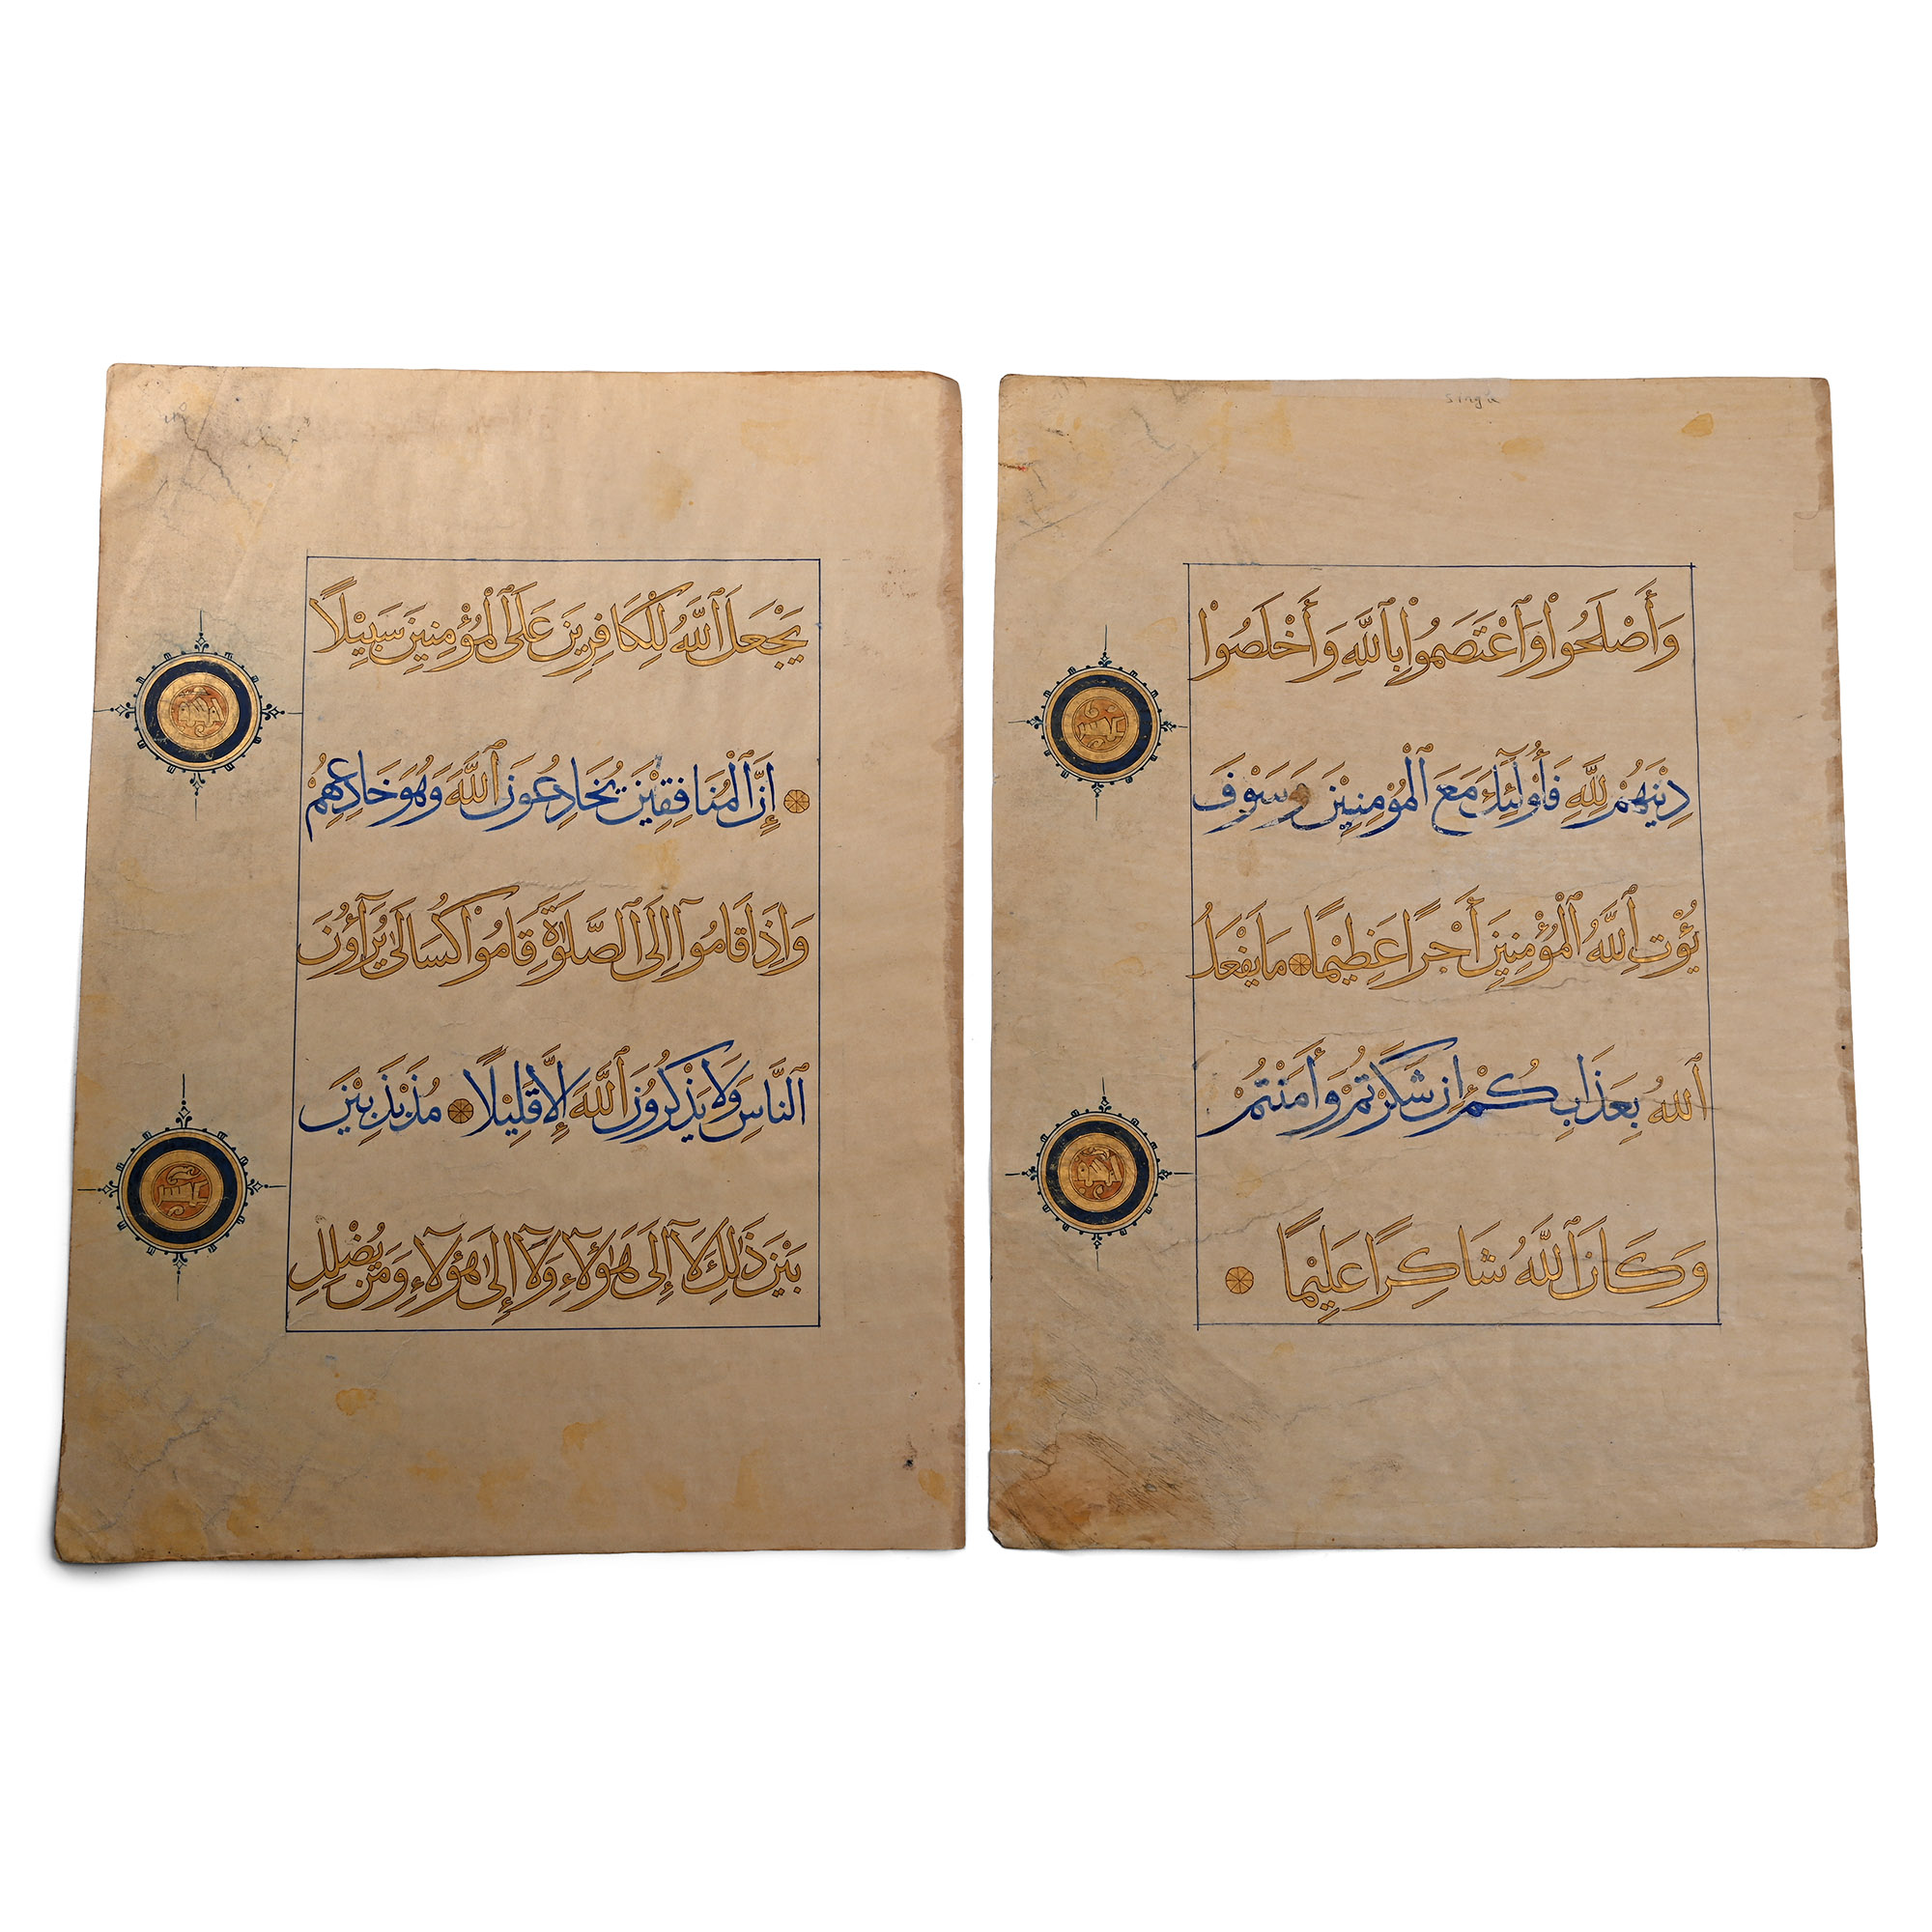 يَجْعَلَ ٱللَّهُ لِلْكَافِرِينَ عَلَى ٱلْمُؤْمِنِينَ سَبِيْلًا
إِنَّ ٱلْمُنَافِقِيْنَ يُخَادِعُونَ ٱللَّهَ وَهُوَ خَادِعُهُمْ
وَإِذَا قَامُوٓا إِلَى ٱلصَّلَوٰةِ قَامُوْا كُسَالَىٰ يُرَآؤُنَ
ٱلنَّاسَ وَلَا يَذْكُرُونَ ٱللَّهَ إِلَّا قَلِيْلًا مُذَبْذَبِيْنَ
بَيْنَ ذَٰلِكَ لَآ إِلَىٰ هَٰٓؤُلَآءِ وَلَآ إِلَىٰ هَٰٓؤُلَآءِ وَمَنْ يُضْلِلِ
وَأَصْلَحُوْا وَٱعْتَصَمُوْا بِٱللَّهِ وَأَخْلَصُوْا
دِيْنَهُمْ لِلَّهِ فَأُولَٰٓئِكَ مَعَ ٱلْمُؤْمِنِيْنَ وَسَوْفَ
يُؤْتِ ٱللَّهُ ٱلْمُؤْمِنِيْنَ أَجْرًا عَظِيْمًا مَا يَفْعَلُ
ٱللَّهُ بِعَذَابِكُمْ إِنْ شَكَرْتُمْ وَأٓمَنْتُمْ
وَكَانَ ٱللَّهُ شَاكِرًا عَلِيْمًا